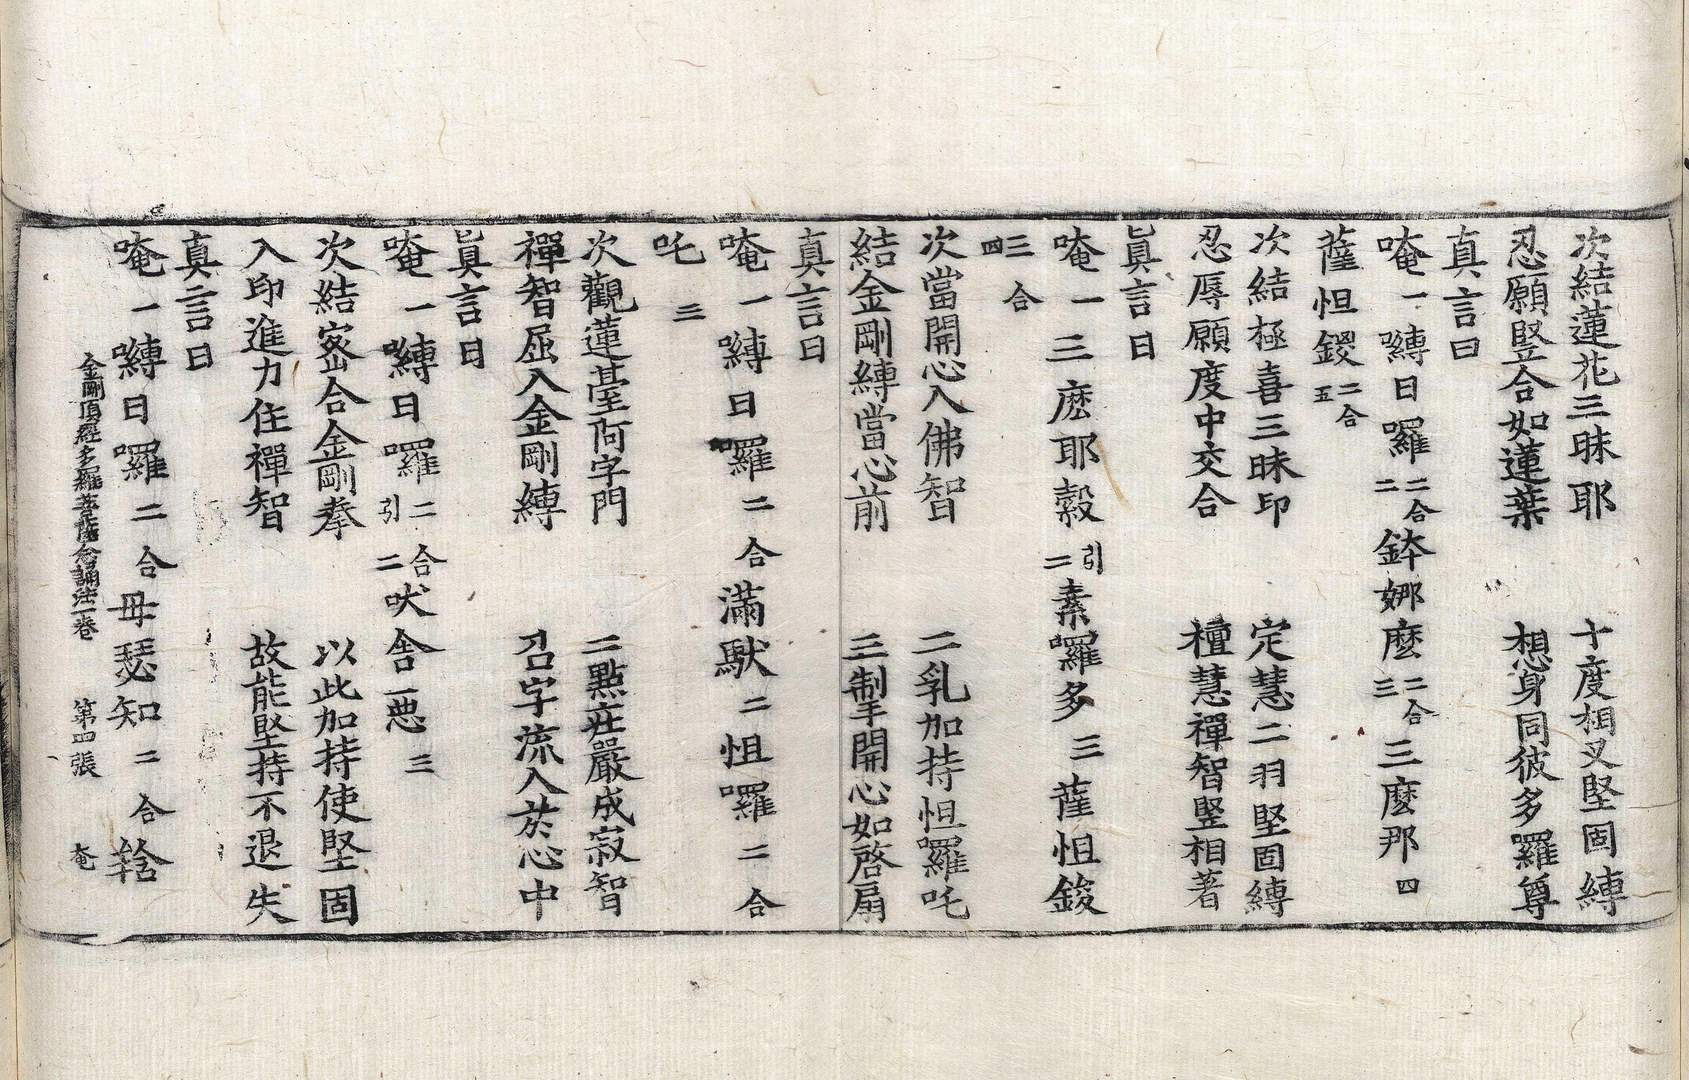 次結蓮花三昧耶　十度相叉堅固縛
忍願竪合如蓮葉　想身同彼多羅尊
真言曰
唵一嚩日囉二合二鉢娜麽二合三三麽那四
薩怛鑁二合五
次結極喜三昧印　定慧二羽堅固縛
忍辱願度中交合　檀慧禪智竪相著
眞言曰
唵一三麽耶穀引二素囉多三薩怛鑁
三合四
次當開心入佛智　二乳加持怛囉吒
結金剛縛當心前　三掣開心如啓扇
真言曰
唵一嚩日囉二合滿馱二怛囉二合
吒三
次觀蓮臺阿字門　二點莊嚴成寂智
禪智屈入金剛縛　召字流入於心中
眞言曰
唵一嚩日囉二合引二吠舍悪三
次結密合金剛拳　以此加持使堅固
入印進力住禪智　故能堅持不退失
真言曰
唵一嚩日囉二合母瑟知二合𤚥
金剛頂經多羅菩薩念誦法一卷　第四張　奄